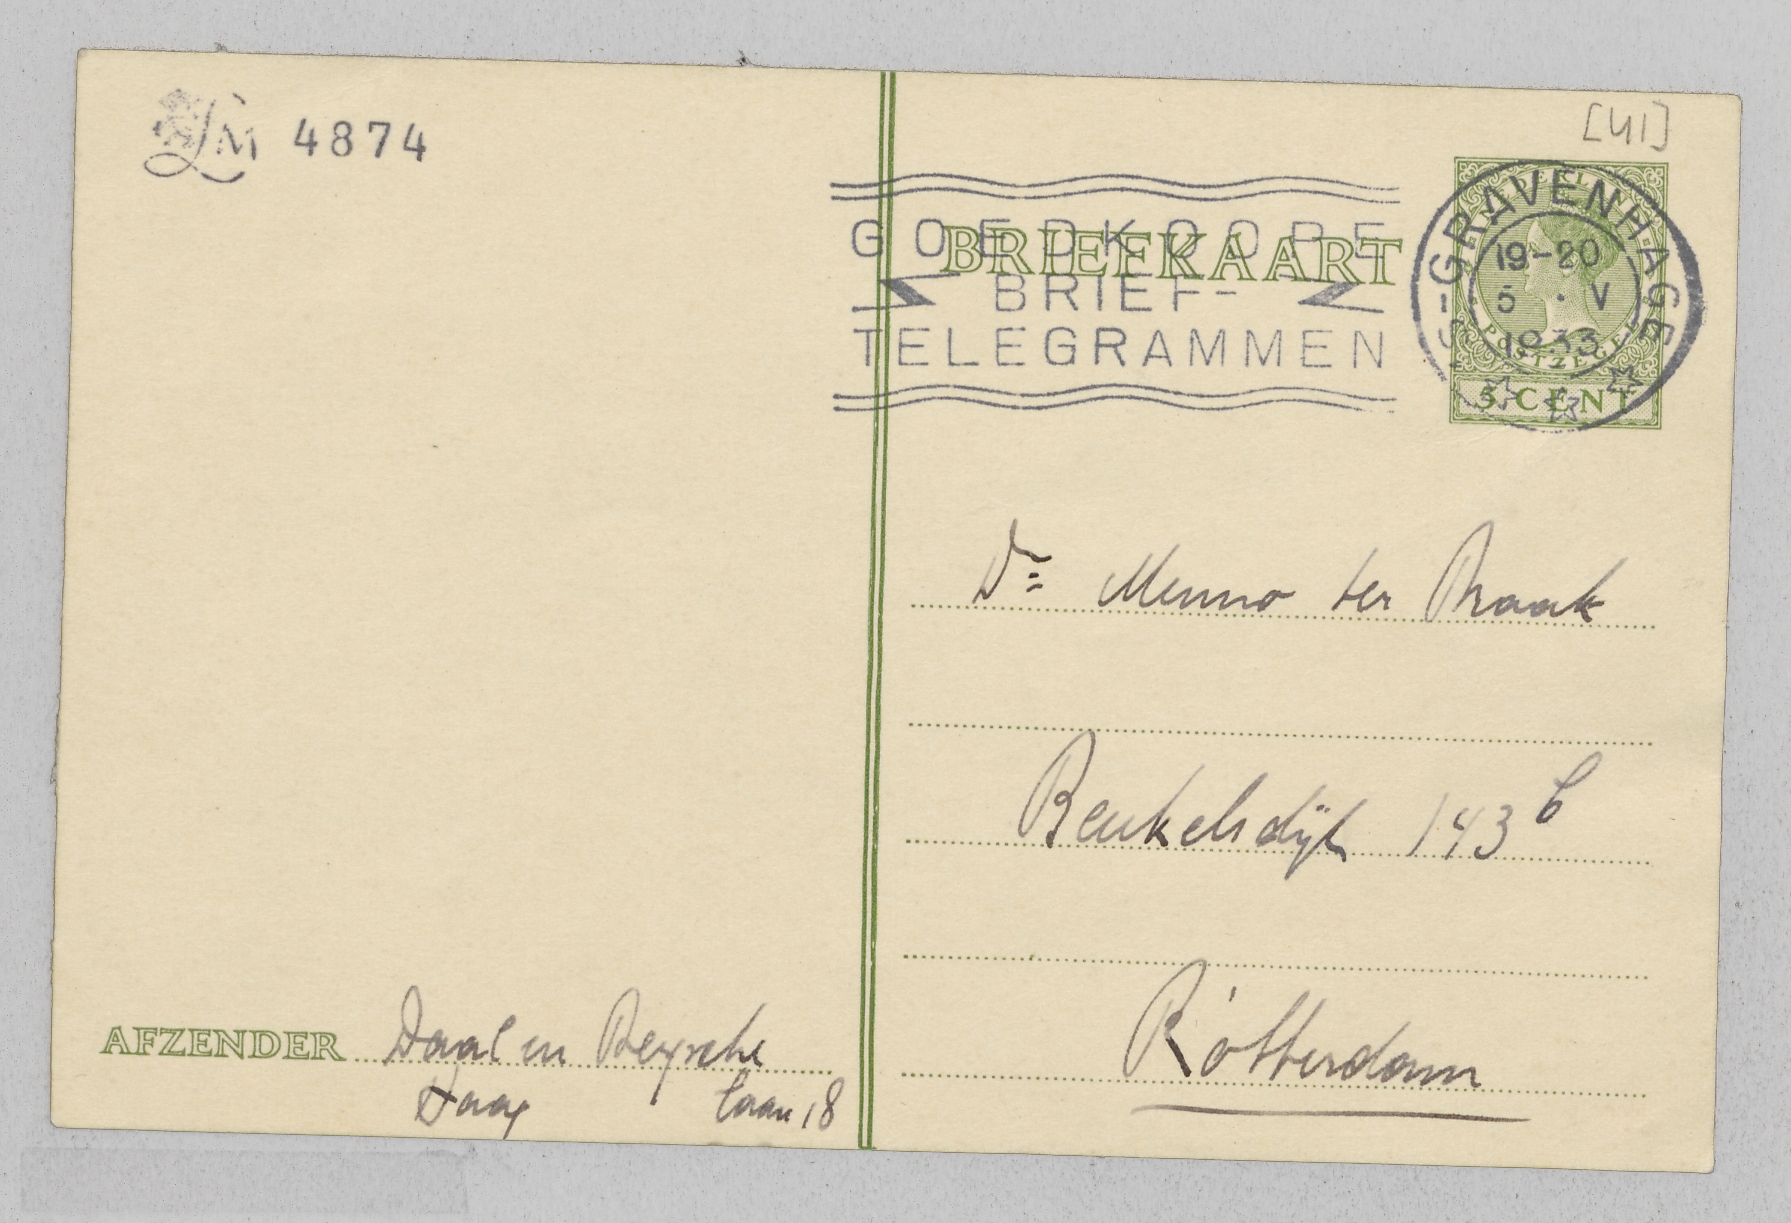 LM 4874
[41]
BRIEFKAART
GOEDKOOPE
BRIEF-
TELEGRAMMEN
'S-GRAVENHAGE
19-20
5 · V
1933
POSTZEGEL
5 CENT
Dr Menno ter Braak
Beukelsdijk 143 b
Rotterdam
AFZENDER Daal en Bergsche
Haag Laan 18